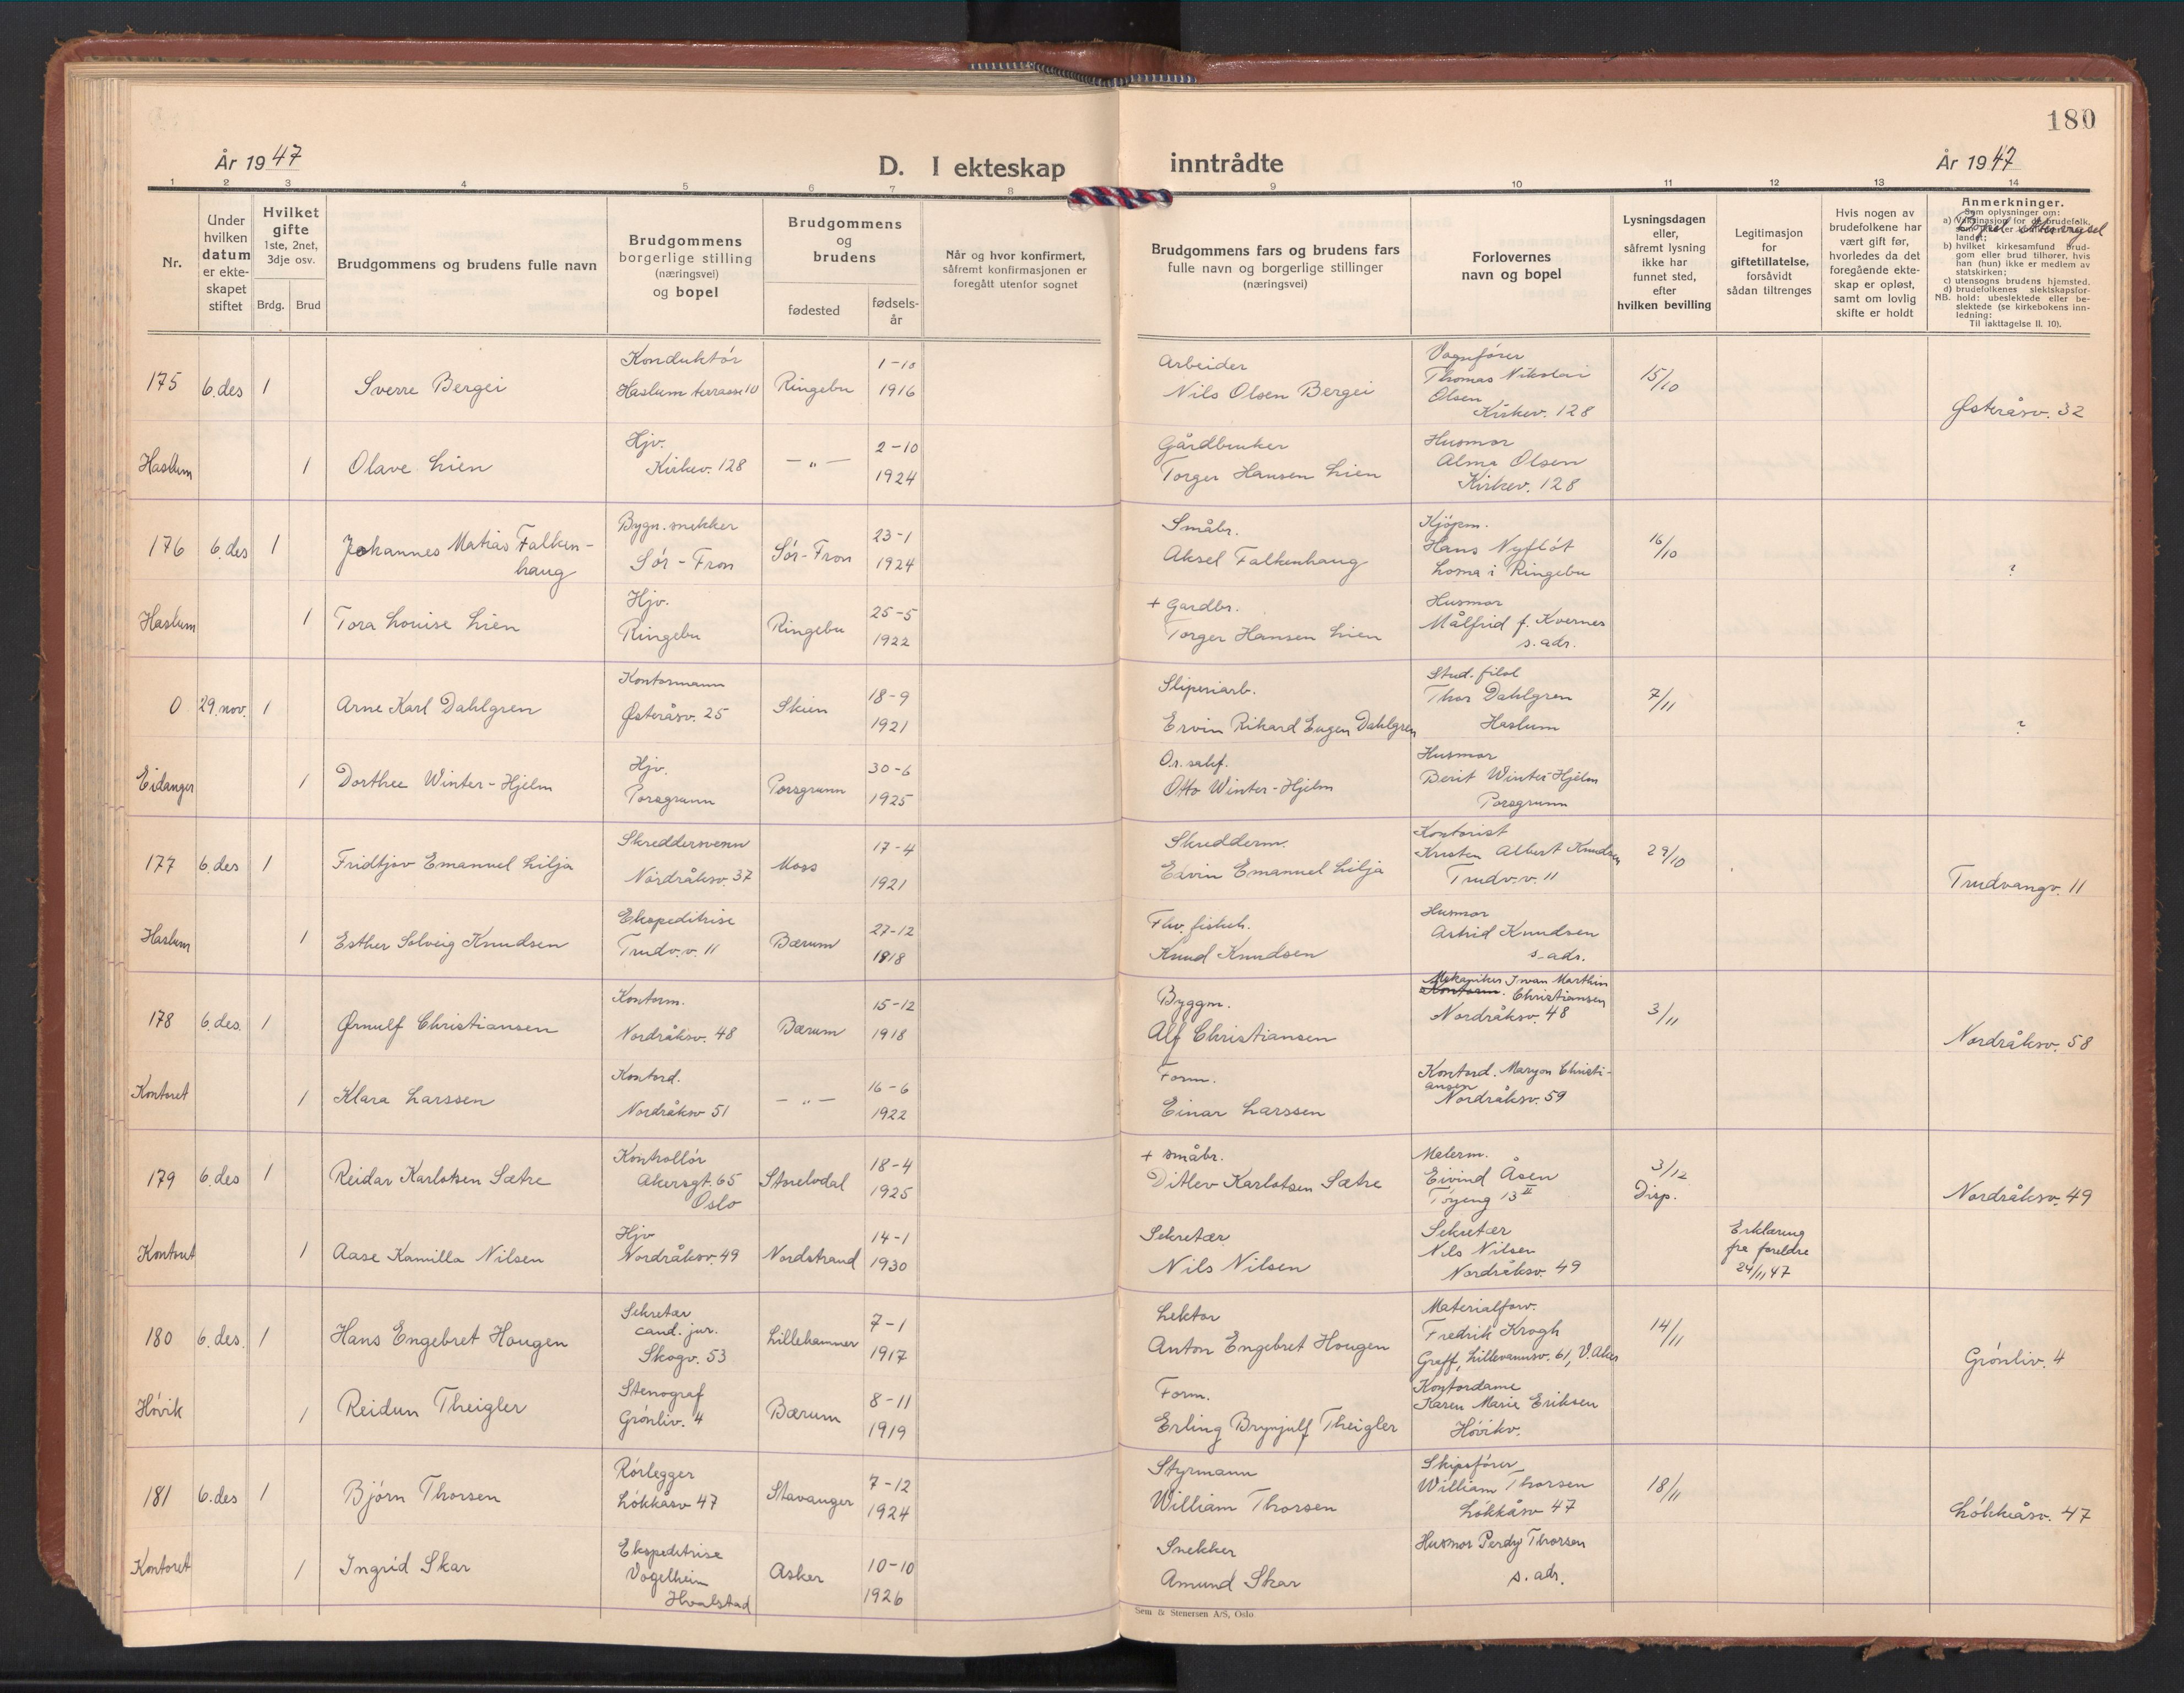 180
År 1947
D. I ekteskap inntrådte
År 1947
1 2 3 4 5 6 7 8 9 10 11 12 13 14
Nr.
Under hvilken datum er ekteskapet stiftet
Hvilket gifte
1ste, 2net, 3dje osv.
Brdg. Brud
Brudgommens og brudens fulle navn
Brudgommens borgerlige stilling (næringsvei) og bopel
Brudgommens og brudens
fødested
fødselsår
Når og hvor konfirmert, såfremt konfirmasjonen er foregått utenfor sognet
Brudgommens fars og brudens fars fulle navn og borgerlige stillinger (næringsvei)
Forlovernes navn og bopel
Lysningsdagen eller, såfremt lysning ikke har funnet sted, efter hvilken bevilling
Legitimasjon for giftetillatelse, forsåvidt sådan tiltrenges
Hvis nogen av brudefolkene har vært gift før, hvorledes da det foregående ekteskap er opløst, samt om lovlig skifte er holdt
Anmerkninger.
Som oplysninger om:
b) hvilket kirkesamfund brudgom eller brud tilhører, hvis han (hun) ikke er medlem av statskirken;
c) utensogns brudens hjemsted.
d) brudefolkenes slektskapsforhold: ubeslektede eller beslektede (se kirkebokens innledning:
NB.
Til iakttagelse II. 10).
175 6. des 1 Sverre Bergei Konduktör Haslum terrasse 10 Ringebu 1-10 1916 Arbeider Nils Olsen Bergei Vognförer Thomas Nikolai Olsen Kirkev. 128 15/10 Østeråsv. 32
Haslum 1 Olave Lien Hjv. Kirkev. 128 — „ — 2-10 1924 Gårdbruker Torger Hansen Lien Husmor Alma Olsen Kirkev. 128
176 6. des 1 Johannes Matias Falkenhaug Bygn. snekker Sör-Fron Sör-Fron 23-1 1924 Småbr. Aksel Falkenhaug Kjöpm. Hans Nyflöt Loma i Ringebu 16/10 ?
Haslum 1 Tora Louise Lien Hjv. Ringebu Ringebu 25-5 1922 + Gardbr. Torger Hansen Lien Husmor Målfrid f. Kvernes s. adr.
0 29. nov. 1 Arne Karl Dahlgren Kontormann Østeråsv. 25 Skien 18-9 1921 Sliperiarb. Ervin Rikard Eugen Dahlgren Stud. filol Thor Dahlgren Haslum 7/11 ?
Eidanger 1 Dorthee Winter-Hjelm Hjv. Porsgrunn Porsgrunn 30-6 1925 Otto Winter-Hjelm Husmor Berit Winter-Hjelm Porsgrunn
177 6. des 1 Fridtjov Emanuel Lilja Skreddersvenn Nordråksv. 37 Moss 17-4 1921 Skredderm. Edvin Emanuel Lilja Kontorist Kristen Albert Knudsen Trudv.v. 11 29/10 Trudvangv. 11
Haslum 1 Esther Solveig Knudsen Ekspeditrise Trudv.v. 11 Bærum 27-12 1918 Knud Knudsen Husmor Astrid Knudsen s. adr.
178 6. des. 1 Ørnulf Christiansen Kontorm. Nordråksv. 48 Bærum 15-12 1918 Byggm. Alf Christiansen Mekaniker Ivan Marthin Kontorm. Christiansen Nordråksv. 48 3/11 Nordråksv. 58
Kontoret 1 Klara Larssen Kontord. Nordråksv 51 — „ — 16-6 1922 Form. Einar Larssen Kontord. Maryon Christiansen Nordråksv. 59
179 6. des 1 Reidar Karlotsen Sætre Kontrollör Akersgt. 65 Oslo Storelvdal 18-4 1925 + småbr. Ditlev Karlotsen Sætre Malerm. Eivind Åsen Töyeng 13 II 3/12 Disp. Nordråksv. 49
Kontoret 1 Aase Kamilla Nilsen Hjv Nordråksv. 49 Nordstrand 14-1 1930 Sekretær Nils Nilsen Sekretær Nils Nilsen Nordråksv. 49 Erklæring fra foreldre 24/11 47
180 6. des. 1 Hans Engebret Hougen Sekretær cand. jur. Skogv. 53 Lillehammer 7-1 1917 Lektor Anton Engebret Hougen Materialforv. Fredrik Krogh Graff, Lillevannsv. 61, V. Aker 14/11 Grönliv. 4
Hövik 1 Reidun Theigler Stenograf Grönliv. 4 Bærum 8-11 1919 Form. Erling Brynjulf Theigler Kontordame Karen Marie Eriksen Hövikv.
181 6. des 1 Björn Thorsen Rörlegger Lökkåsv 47 Stavanger 7-12 1924 Styrmann William Thorsen Skipsförer William Thorsen Lökkåsv 47 18/11 Lökkeåsv. 47
Kontoret 1 Ingrid Skar Ekspeditrise Vogelheim Hvalstad Asker 10-10 1926 Snekker Amund Skar Husmor Perdy Thorsen s. adr.
Sem & Stenersen A/S, Oslo